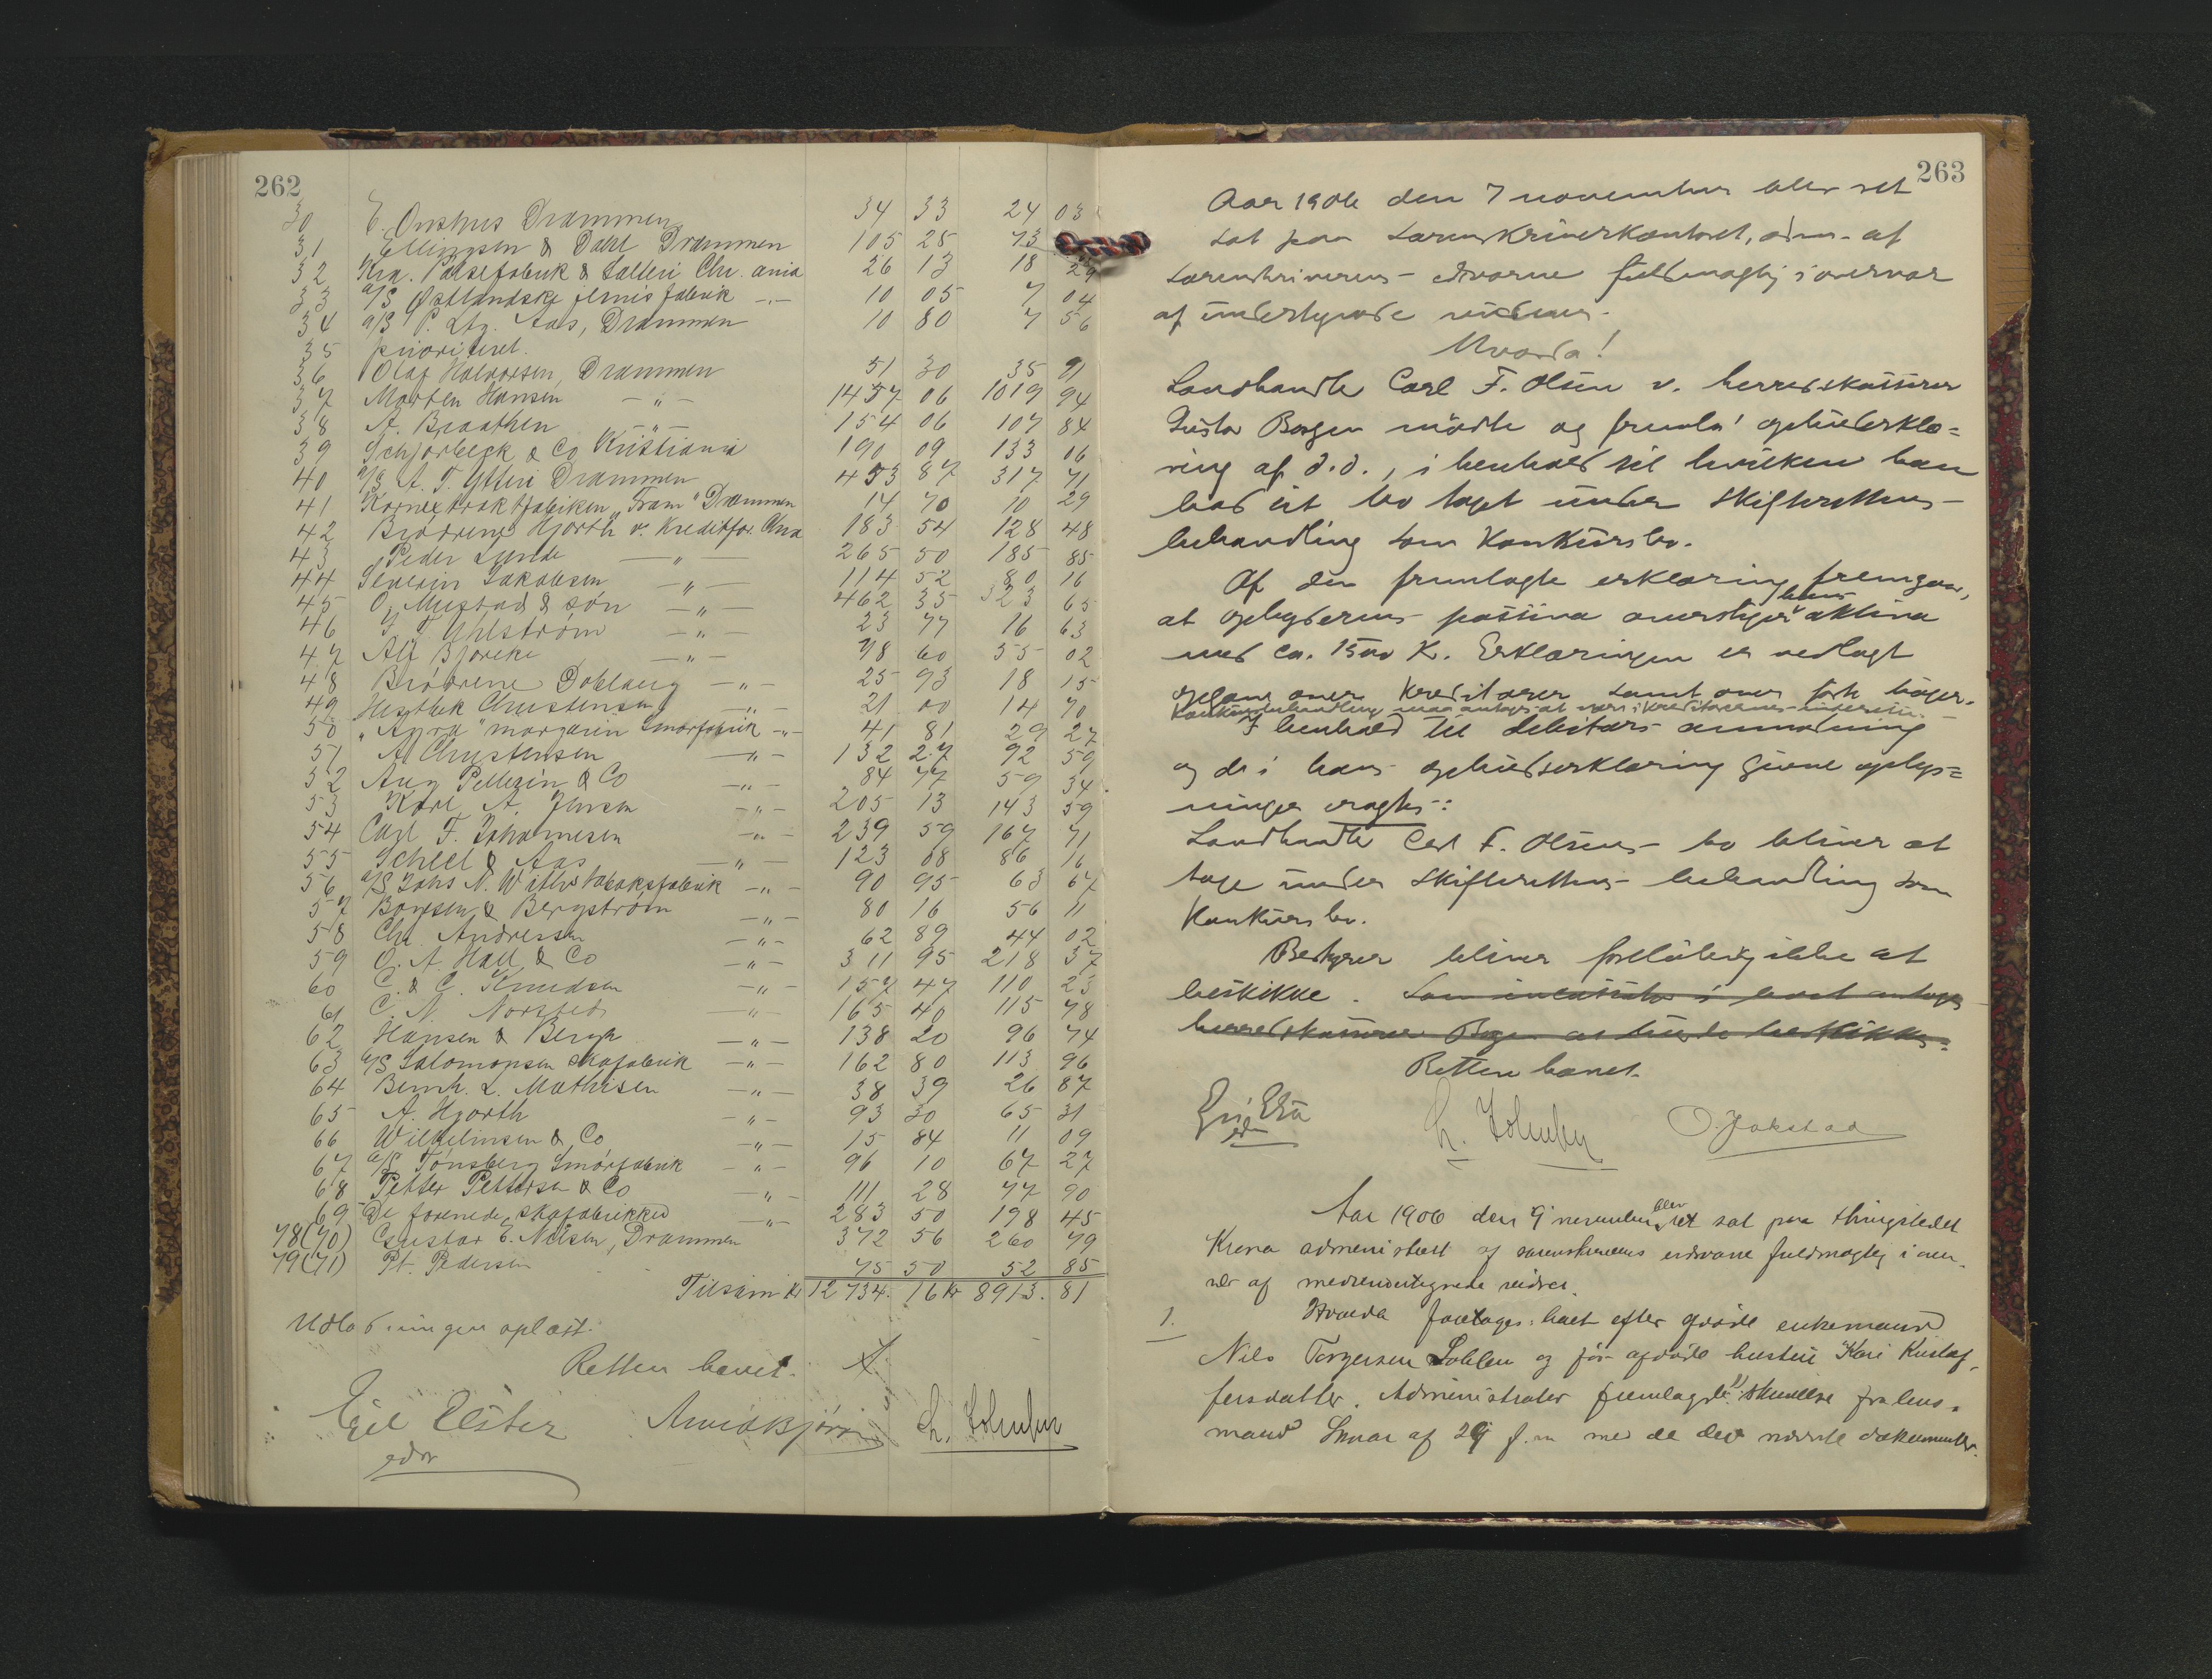 262
30 E. Onshus Drammen 34 33 24 03
31 Ellingsen & Dahl Drammen 105 25 73
32 Kra. Pølsefabrik & Salteri Chr. ania 26 13 18 29
33 A/S Østlandske fabrik -"- 10 05 7 04
34 A/S P. Ltz. Aas, Drammen 10 80 7 56
35 prioriteret.
36 Olaf Halvorsen, Drammen 51 30 35 91
37 Morten Hansen -"- 1457 06 1019 94
38 A. Braathen -"- 154 06 107 84
39 Schjørbeck & Co Kristiania 190 09 133 06
40 A/S A. T. Ytteri Drammen 453 87 317 71
41 Kornextraktfabriken "Fram" Drammen 14 70 10 29
42 Brødrene Hjorth v. Kreditfor. Chra 183 54 128 48
43 Peder Lunde -"- 265 50 185 85
44 Severin Jakobsen -"- 114 52 80 16
45 O. Mustad & søn -"- 462 35 323 65
46 Uhlstrøm -"- 23 77 16 63
47 Alf Bjercke -"- 78 60 55 02
48 Brødrene Doblaug -"- 25 93 18 15
49 Christensen -"- 21 00 14 70
50 "Agra" margarin Smørfabrik -"- 41 81 29 27
51 A. Christensen -"- 132 27 92 59
52 Aug Pellerin & Co -"- 84 77 59 34
53 Karl A. Jensen -"- 205 13 143 59
54 Carl F. Johannesen -"- 239 59 167 71
55 Scheel & Aas -"- 123 08 86 16
56 A/S Johs N. Withs tobaksfabrik -"- 90 95 63 67
57 Bonesen & Bergstrøm -"- 80 16 56 11
58 Chr. Andresen -"- 62 89 44 02
59 O. A. Hall & Co -"- 311 95 218 37
60 C. & C. Knudsen -"- 157 47 110 23
61 C. N. Norsted -"- 165 40 115 78
62 Hansen & Bergh -"- 138 20 96 74
63 A/S Salomonsen skofabrik -"- 162 80 113 96
64 Bernh. L. Mathisen -"- 38 39 26 87
65 A. Hjorth -"- 93 30 65 31
66 Wilhelmsen & Co -"- 15 84 11 09
67 A/S Tønsberg Smørfabrik -"- 96 10 67 27
68 Petter Pettersen & Co -"- 111 28 77 90
69 De forenede skofabrikker -"- 283 50 198 45
78(70) Gustav E. Nelsen, Drammen 372 56 260 79
79(71) Pt. Pedersen 75 50 52 85
Tilsam. Kr 12734. 16 Kr 8913. 81
Udlodningen oplæst.
Retten hævet.
Egil Elster
edsv
263
Aar 1906 den 7 november blev ret
sat paa sorenskriverkontoret, adm. af
sorenskriverens edsvorne fuldmægtig i overvær
af undertegnede vidner.
Hvorda!
Landhandler Carl F. Olsen v. herredskasserer
Gustav Borgen mødte og fremla' opbudserklæ=
ring af d.d., i henhold til hvilken han
bad sit bo taget under skifterettens
behandling som konkursbo.
Af den fremlagte erklæring fremgaar,
at opbyderens passiva overstiger hans aktiva
med ca. 1500 K. Erklæringen er vedlagt
opgave over kreditorer samt over førte bøger.
Konkursbehandling maa antages at være i kreditorernes interesse.
I henhold til debitors anmodning
og de i hans opbudserklæring givne oplys=
ninger vragtes:
Landhandler Carl F. Olsens bo bliver at
tage under skifterettens behandling som
konkursbo.
Bestyrer bliver foreløbig ikke at
beskikke. Som i boet antages
herredskasserer Borgen at burde beskikkes.
Retten hævet.
O. Jakstad
Aar 1906 den 9 november blev ret sat paa thingstedet
Krona administrert af sorenskriverens edsvorne fuldmægtig i over-
vær af medundertegnede vidner.
1. Hvorda foretoges: boet efter afdøde enkemand
Nils Torgersen Lohlen og før afdøde hustru Kari Kristof-
fersdatter. Administrator fremlagde skrivelse fra lens-
mand af 29 f.m med de der nævnte dokumenter.